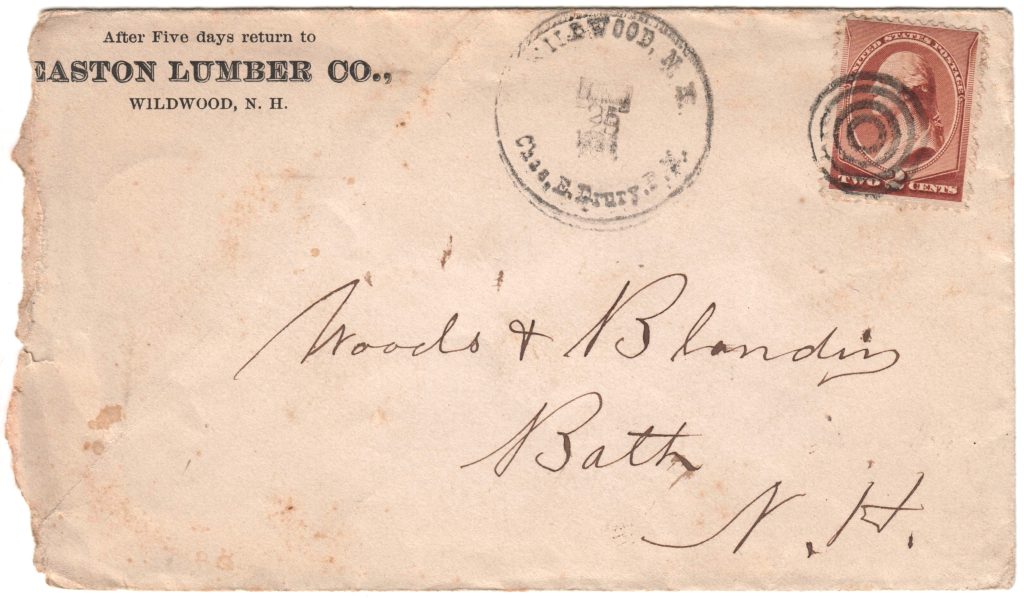 After Five days return to
EASTON LUMBER CO.,
WILDWOOD, N. H.
WILDWOOD, N. H.
25
Chas. E. Drury, P. M.
UNITED STATES POSTAGE
TWO 2 CENTS
Woods & Blandin
Bath
N. H.